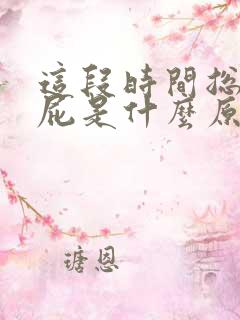 這段時間總
屁是什麼原
瑭恩